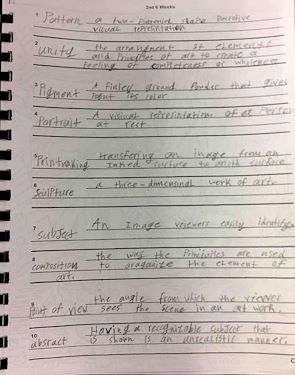 2nd 6 Weeks
1 Pattern a two-dimensional shape Decrative
visual reprisentation
2 unity the arrangment of elements
and Principles of art to create a
feeling of completeness or wholeness
3 Pigment A finley ground Powder that gives
Paint its color
4 Portrait A visical representation of a Person
at rest
5 Printmaking transfering an image from an
Inked surface to anoth surface.
6 Sculpture a three-dimensional work of art.
7 subject An Image veiwers easily identify
8 composition the way the Principles are used
to oraganize the element of
art.
9 Point of view the angle from which the viewer
sees the scene in an art work.
10 absract Having a recognizable subject that
is shown in an unrealistic manner.